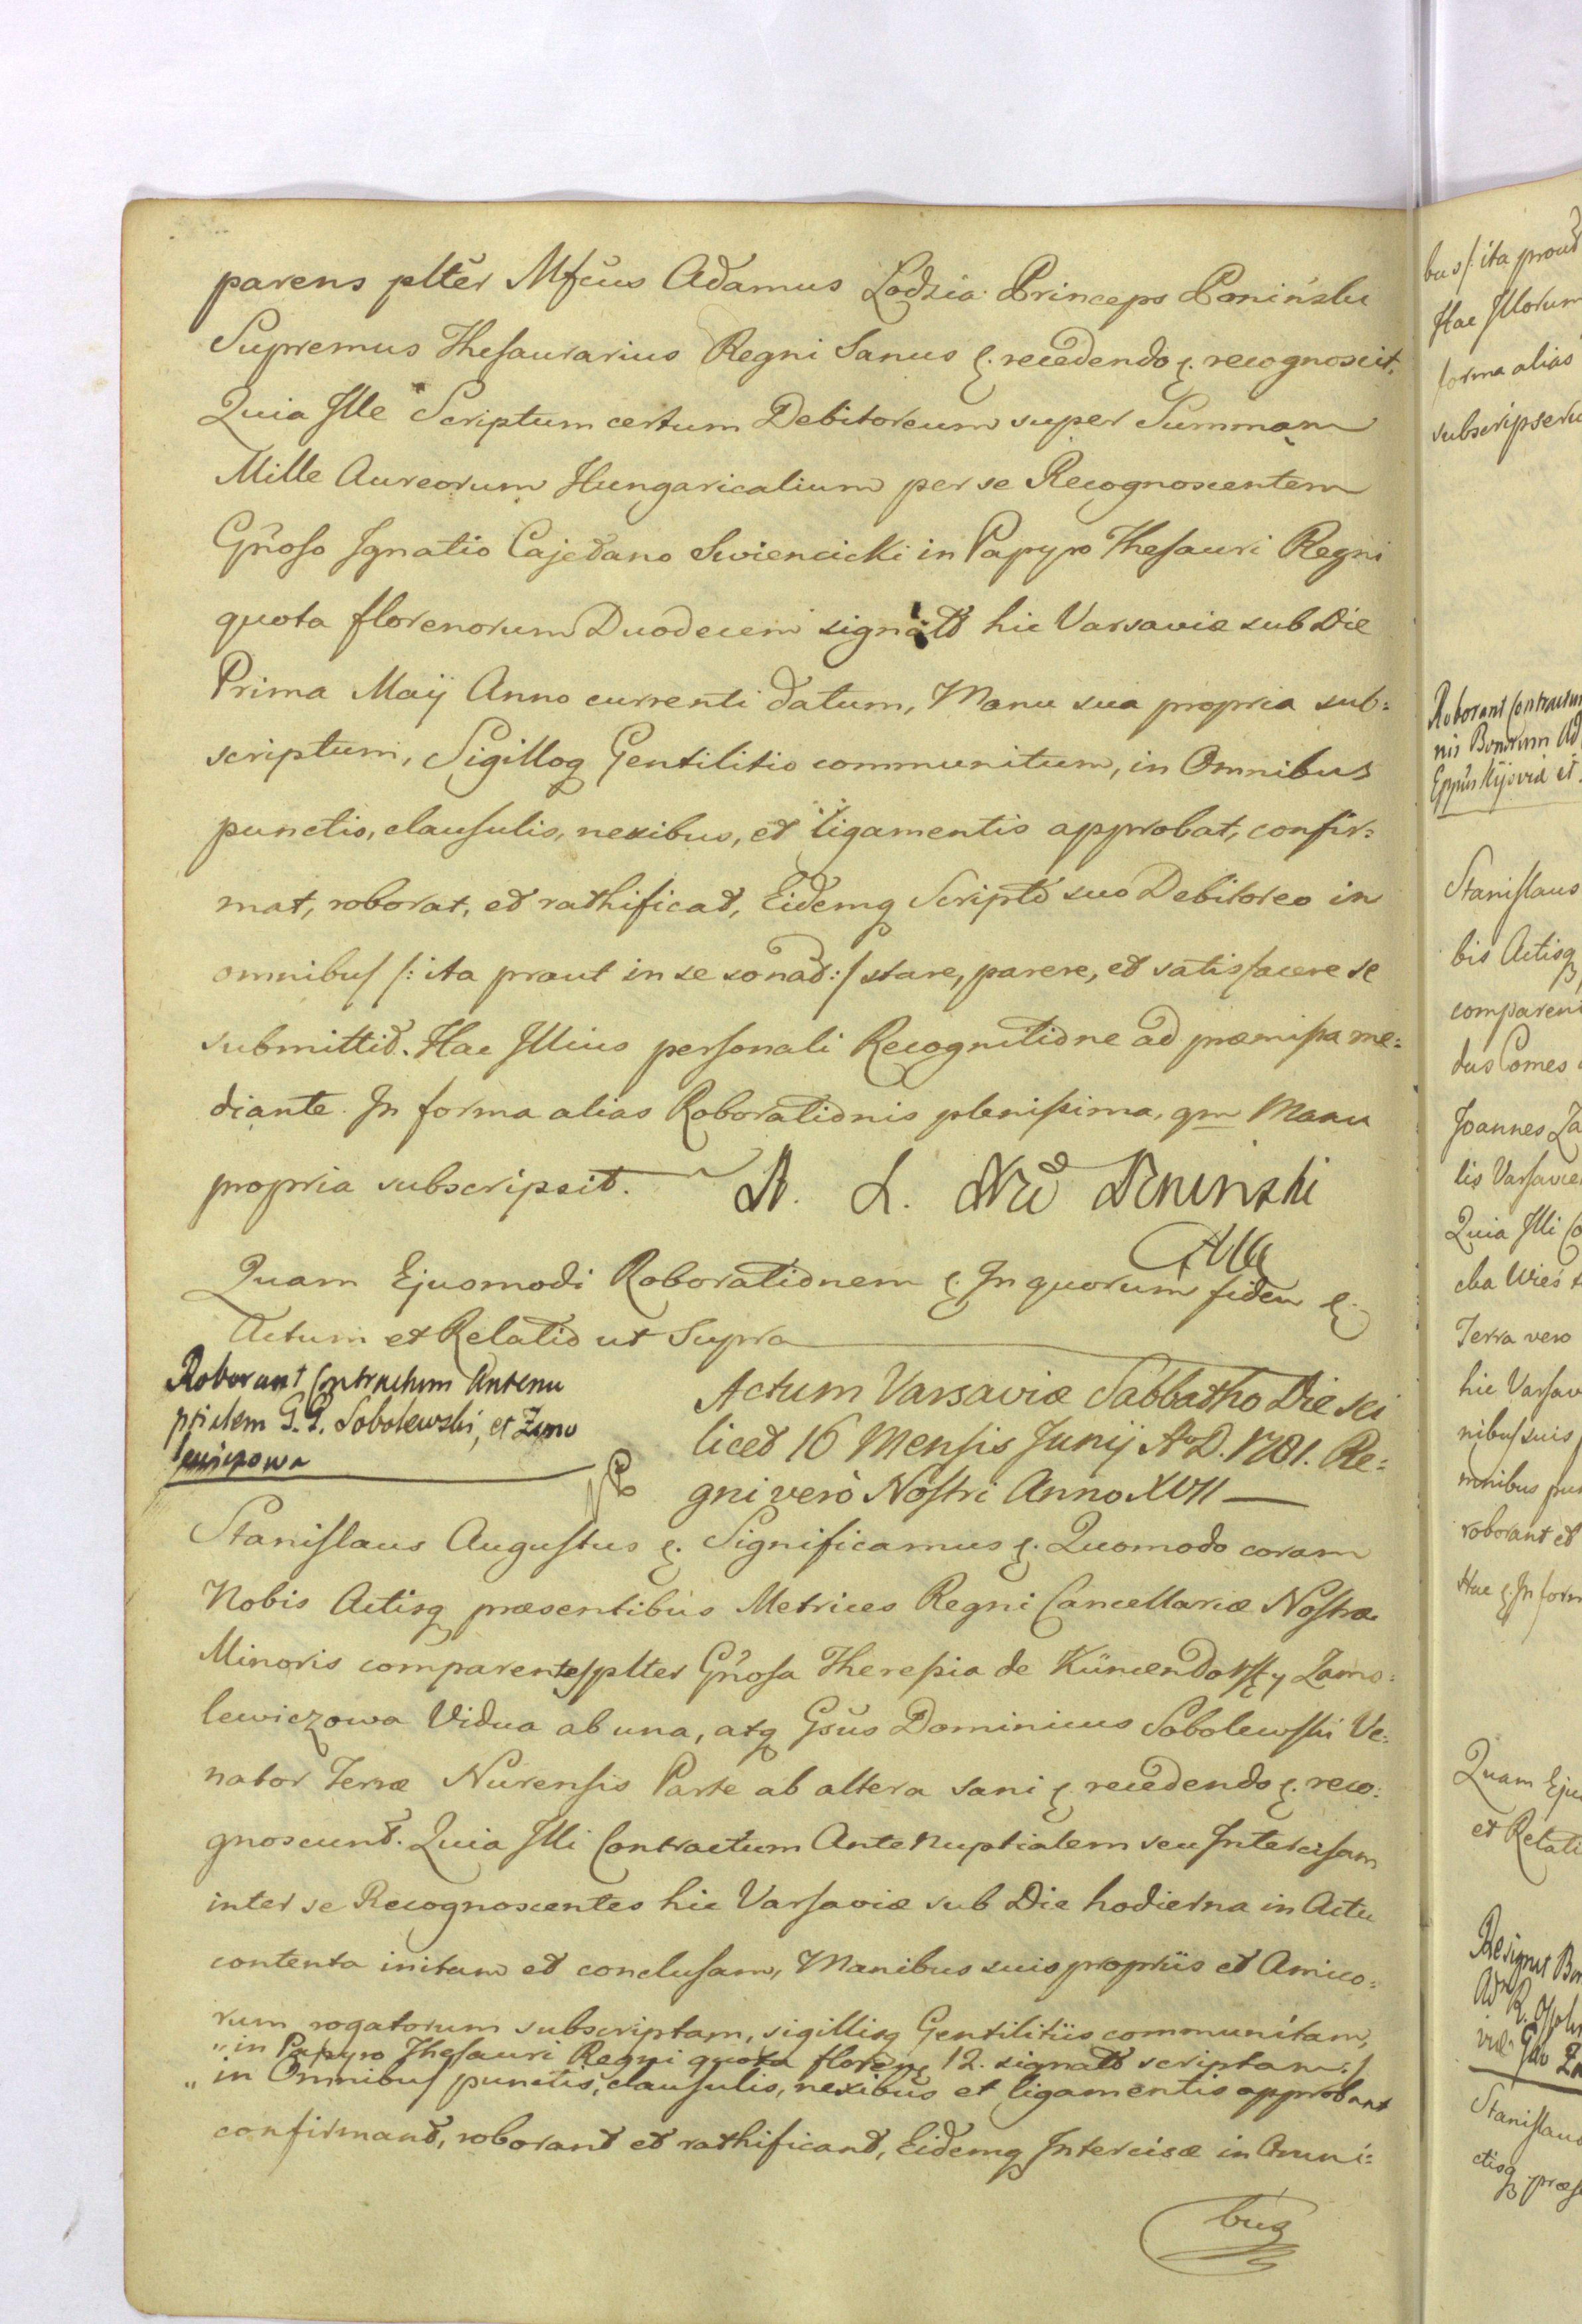 parens plter Mfcus Adamus Lodzia Princeps Poninski
Supremus Thesaurarius Regni Sanus &. recedendo &. recognoscit.
Quia Ille Scriptum certum Debitoreum super Summam
Mille Aureorum Hungaricalium per se Recognoscentem
Gnoso Ignatio Cajetano Swiencicki in Papyro Thesauri Regni
quota florenorum Duodecem signato hic Varsaviæ sub Die
Prima Maij Anno currenti datum, Manu sua propria sub=
scriptum, Sigilloq Gentilitio communitum, in Omnibus
punctis, clausulis, nexibus, et ligamentis approbat, confir=
mat, roborat, et rathificat, Eidemq Scripto suo Debitoreo in
omnibus /: ita prout in se sonat :/ stare, parere, et satisfacere se
submittit. Hac Illius personali Recognitione ad præmissa me=
diante. In forma alias Roborationis plenissima, qm Manu
propria subscripsit. A. L. Poninski
Quam Ejusmodi Roborationem &. In quorum fidem &.
Actum et Relatio ut Supra
Roborant Contractum Antenu
ptialem G. G. Sobolewski, et Zamo
lewiczowa
Actum Varsaviæ Sabbatho Die sci
licet 16 Mensis Junij A. D. 1781. Re=
gni verò Nostri Anno XVII
Stanislaus Augustus &. Significamus &. Quomodo coram
Nobis Actisq præsentibus Metrices Regni Cancellariæ Nostræ
Minoris comparentes plter Gnosa Theresia de Zamo=
lewiczowa Vidua ab una, atq Gsus Dominicus Sobolewski Ve=
nator Terræ Nurensis Parte ab altera sani &. recedendo &. reco=
gnoscunt. Quia Illi Contractum Antenuptialem seu Intercisam
inter se Recognoscentes hic Varsaviæ sub Die hodierna in Actu
contenta initam et conclusam, Manibus suis propriis et Amico=
rum rogatorum subscriptam, sigillisq Gentilitiis communitam,
„ in Papyro Thesauri Regni quota floren 12. signato scriptam :/
„ in Omnibus punctis, clausulis, nexibus et ligamentis approbant
confirmant, roborant et rathificant, Eidemq Intercisæ in Omni=
bus
bus /: ita prout
Hac Illorum
forma alias
subscripseru
Roborant Contractum
nis Bonorum Ad
Eppus Kijoviæ et
Stanislaus
bis Actisq
comparent
dus Comes
Joannes Za
lis Varsavie
Quia Illi Co
cka Wieś
Terra vero
hic Varsav
nibus suis
mnibus pun
roborant et
Hac &. In form
Quam Eju
et Relati
Resignat Bon
Stanislaus
ctisq præs